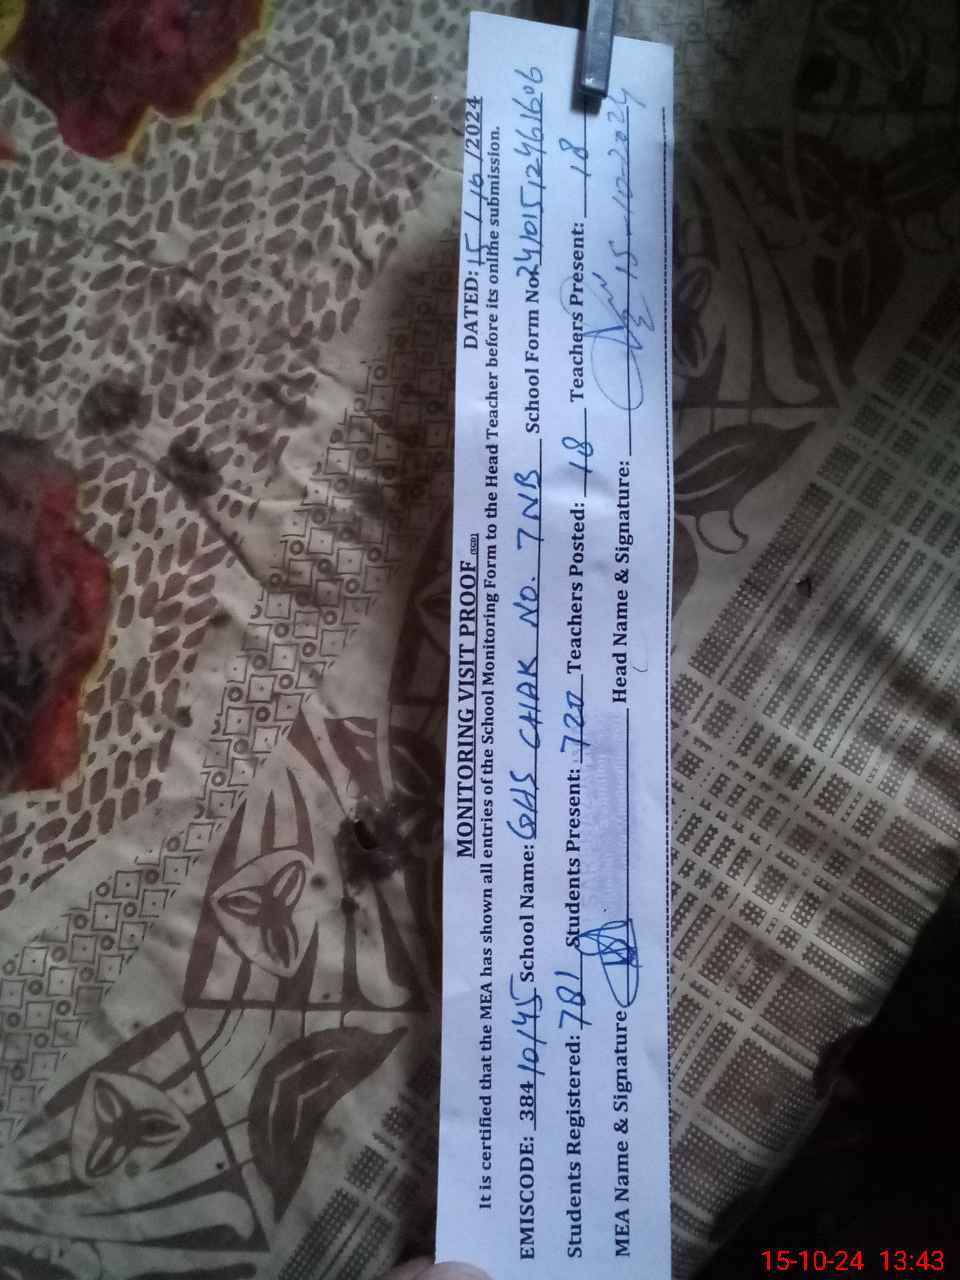 MONITORING VISIT PROOF (SGD)
DATED: 15 / 10 /2024
It is certified that the MEA has shown all entries of the School Monitoring Form to the Head Teacher before its online submission.
EMISCODE: 38410145 School Name: GHS CHAK NO. 7NB School Form No: 24101512461606
Students Registered: 781 Students Present: 720 Teachers Posted: 18 Teachers Present: 18
MEA Name & Signature Head Name & Signature: 15-10-2024
15-10-24 13:43